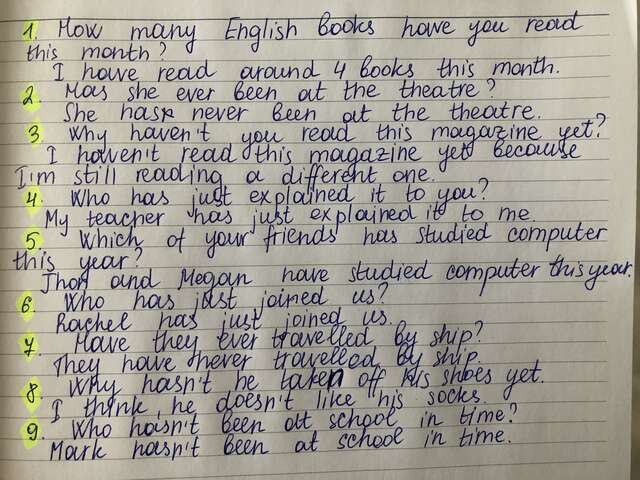 1. How many English books have you read
this month?
I have read around 4 books this month.
2. Has she ever been at the theatre?
She has never been at the theatre.
3. Why haven't you read this magazine yet?
I haven't read this magazine yet because
I'm still reading a different one.
4. Who has just explained it to you?
My teacher has just explained it to me.
5. Which of your friends has studied computer
this year?
Jhon and Megan have studied computer this year.
6. Who has just joined us?
Rachel has just joined us.
7. Have they ever travelled by ship?
They have never travelled by ship.
8. Why hasn't he taken off his shoes yet.
I think, he doesn't like his socks.
9. Who hasn't been at school in time?
Mark hasn't been at school in time.